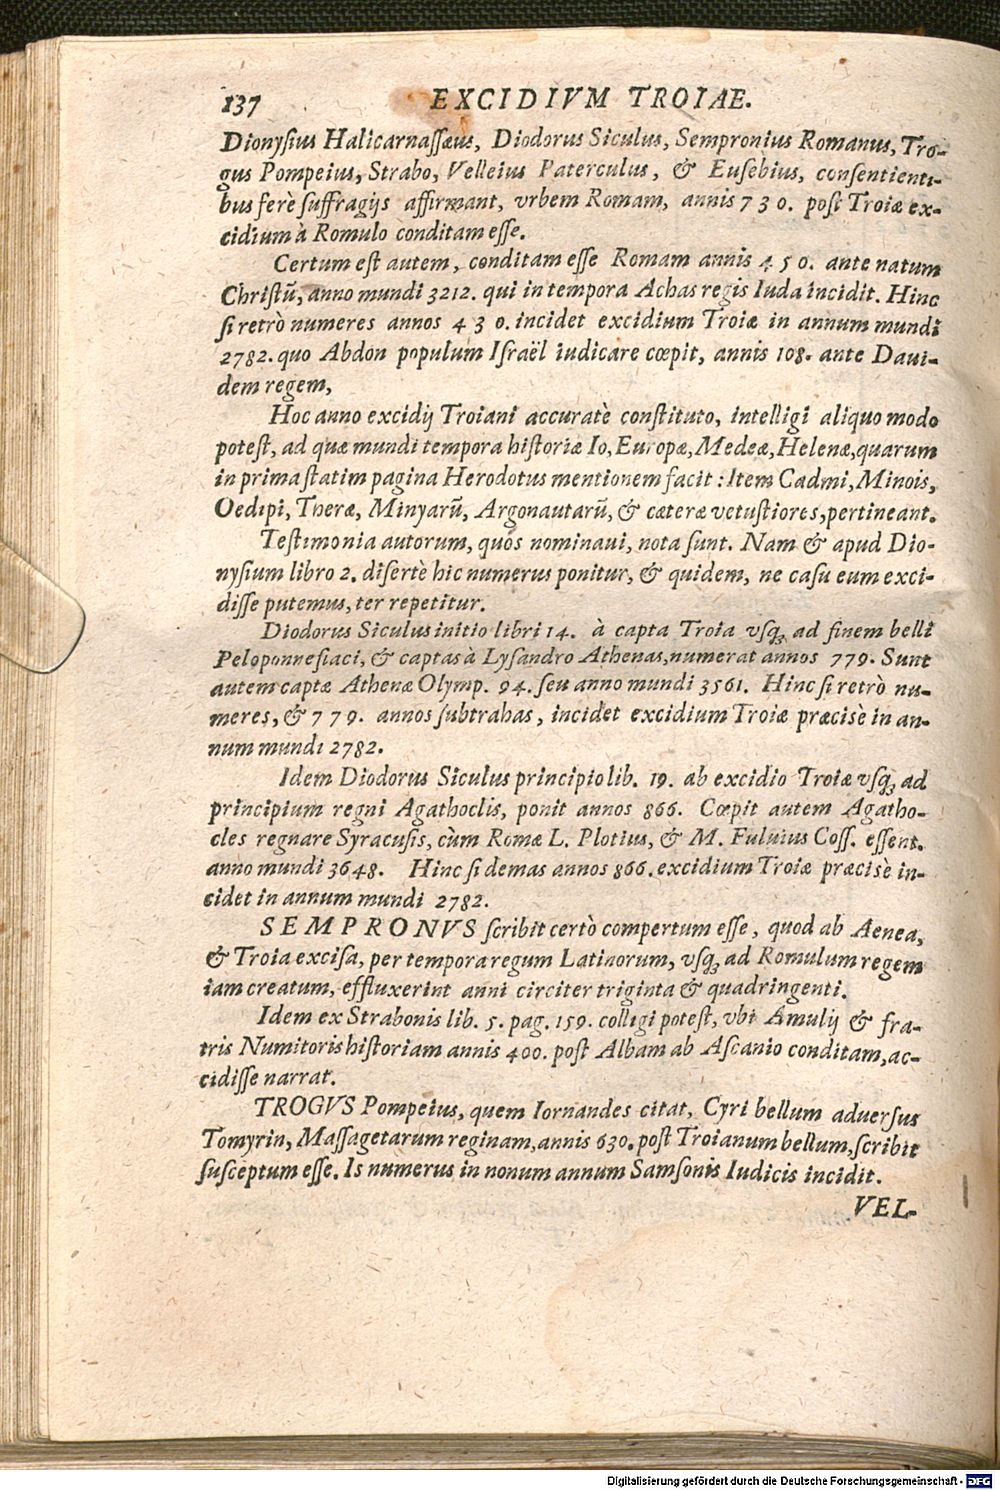 137 EXCIDIVM TROIAE.
Dionysius Halicarnassæus, Diodorus Siculus, Sempronius Romanus, Tro-
gus Pompeius, Strabo, Velleius Paterculus, & Eusebius, consentienti-
bus ferè suffragijs affirmant, vrbem Romam, annis 730. post Troiæ ex-
cidium à Romulo conditam esse.
Certum est autem, conditam esse Romam annis 450. ante natum
Christū, anno mundi 3212. qui in tempora Achas regis Iuda incidit. Hinc
si retrò numeres annos 430. incidet excidium Troiæ in annum mundi
2782. quo Abdon populum Israël iudicare cœpit, annis 108. ante Daui-
dem regem,
Hoc anno excidij Troiani accuratè constituto, intelligi aliquo modo
potest, ad quæ mundi tempora historiæ Io, Europæ, Medeæ, Helenæ, quarum
in prima statim pagina Herodotus mentionem facit: Item Cadmi, Minois,
Oedipi, Theræ, Minyarū, Argonautarū, & cæteræ vetustiores, pertineant.
Testimonia autorum, quos nominaui, nota sunt. Nam & apud Dio-
nysium libro 2. disertè hic numerus ponitur, & quidem, ne casu eum exci-
disse putemus, ter repetitur.
Diodorus Siculus initio libri 14. à capta Troia vsq; ad finem belli
Peloponnesiaci, & captas à Lysandro Athenas, numerat annos 779. Sunt
autem captæ Athenæ Olymp. 94. seu anno mundi 3561. Hinc si retrò nu-
meres, & 779. annos subtrahas, incidet excidium Troiæ præcisè in an-
num mundi 2782.
Idem Diodorus Siculus principio lib. 19. ab excidio Troiæ vsq; ad
principium regni Agathoclis, ponit annos 866. Cœpit autem Agatho-
cles regnare Syracusis, cùm Romæ L. Plotius, & M. Fuluius Coss. essent.
anno mundi 3648. Hinc si demas annos 866. excidium Troiæ præcisè in-
cidet in annum mundi 2782.
SEMPRONVS scribit certò compertum esse, quod ab Aenea,
& Troia excisa, per tempora regum Latinorum, vsq; ad Romulum regem
iam creatum, effluxerint anni circiter triginta & quadringenti.
Idem ex Strabonis lib. 5. pag. 159. colligi potest, vbi Amulij & fra-
tris Numitoris historiam annis 400. post Albam ab Ascanio conditam, ac-
cidisse narrat.
TROGVS Pompeius, quem Iornandes citat, Cyri bellum aduersus
Tomyrin, Massagetarum reginam, annis 630. post Troianum bellum, scribit
susceptum esse. Is numerus in nonum annum Samsonis Iudicis incidit.
VEL-
Digitalisierung gefördert durch die Deutsche Forschungsgemeinschaft - DFG